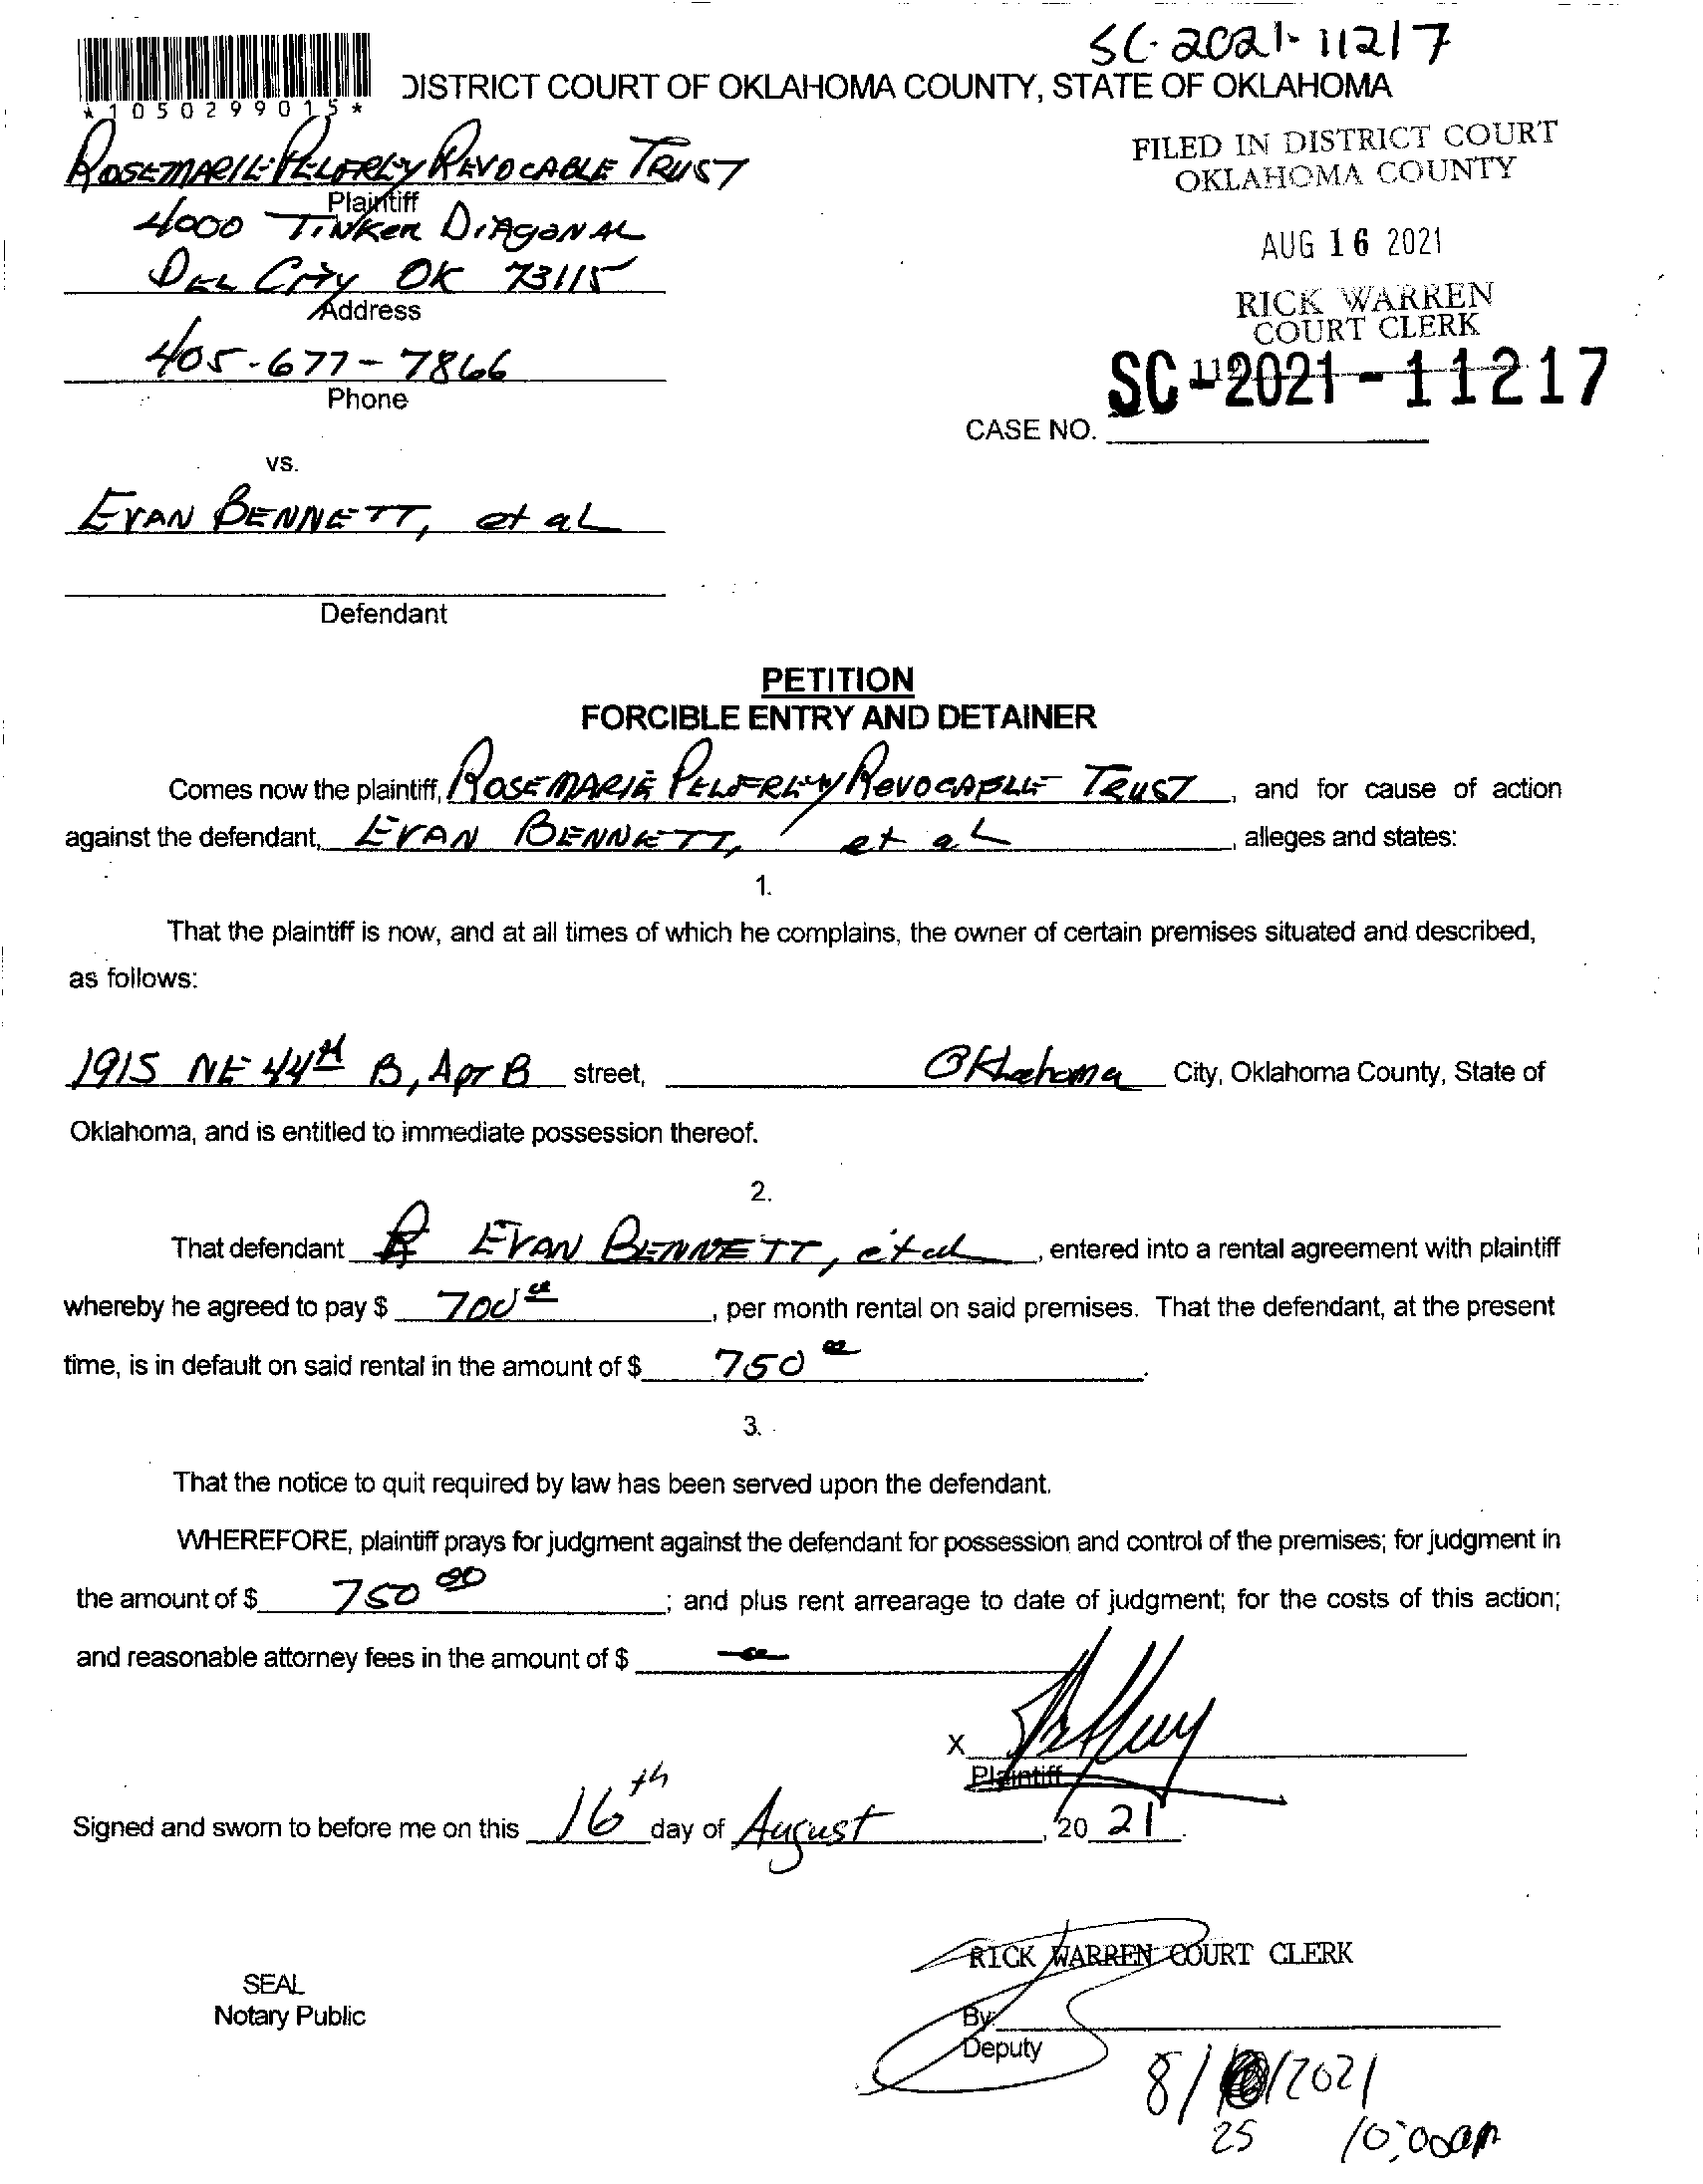 SC-2021-11217
*1050299015*
DISTRICT COURT OF OKLAHOMA COUNTY, STATE OF OKLAHOMA
FILED IN DISTRICT COURT
OKLAHOMA COUNTY
ROSEMARIE PELFREY REVOCABLE TRUST
Plaintiff
4000 TINKER DIAGONAL
AUG 16 2021
DEL CITY OK 73115
Address
RICK WARREN
COURT CLERK
405-677-7866
Phone
SC-2021-11217
CASE NO.
vs.
EVAN BENNETT, et al
Defendant
PETITION
FORCIBLE ENTRY AND DETAINER
Comes now the plaintiff, ROSEMARIE PELFREY REVOCABLE TRUST, and for cause of action
against the defendant, EVAN BENNETT, et al, alleges and states:
1.
That the plaintiff is now, and at all times of which he complains, the owner of certain premises situated and described,
as follows:
1915 NE 44th B, Apt B street, Oklahoma City, Oklahoma County, State of
Oklahoma, and is entitled to immediate possession thereof.
2.
That defendant EVAN BENNETT, et al, entered into a rental agreement with plaintiff
whereby he agreed to pay $ 700 00, per month rental on said premises. That the defendant, at the present
time, is in default on said rental in the amount of $ 750 00.
3.
That the notice to quit required by law has been served upon the defendant.
WHEREFORE, plaintiff prays for judgment against the defendant for possession and control of the premises; for judgment in
the amount of $ 750 00; and plus rent arrearage to date of judgment; for the costs of this action;
and reasonable attorney fees in the amount of $
X
Plaintiff
Signed and sworn to before me on this 16th day of August, 20 21.
RICK WARREN COURT CLERK
SEAL
Notary Public
By:
Deputy
8/ /2021
25 10:00am